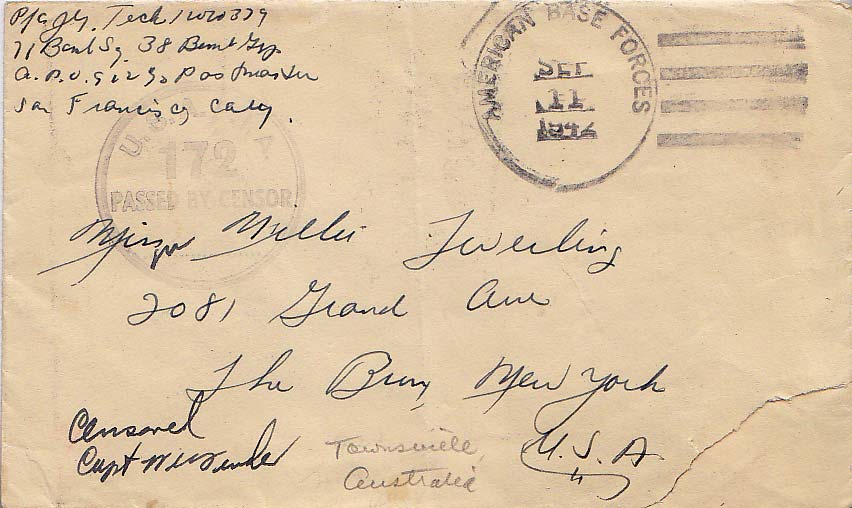 Tech
71 Bomb Sq. 38 Bomb Grp
A.P.O. 912 % Postmaster
San Francisco Caly.
AMERICAN BASE FORCES
SEP
11
1942
U.S. ARMY
172
PASSED BY CENSOR
Miss Millie Twerling
2081 Grand Ave
The Bronx New York
U.S.A
Censored
Capt
Townsville,
Australia